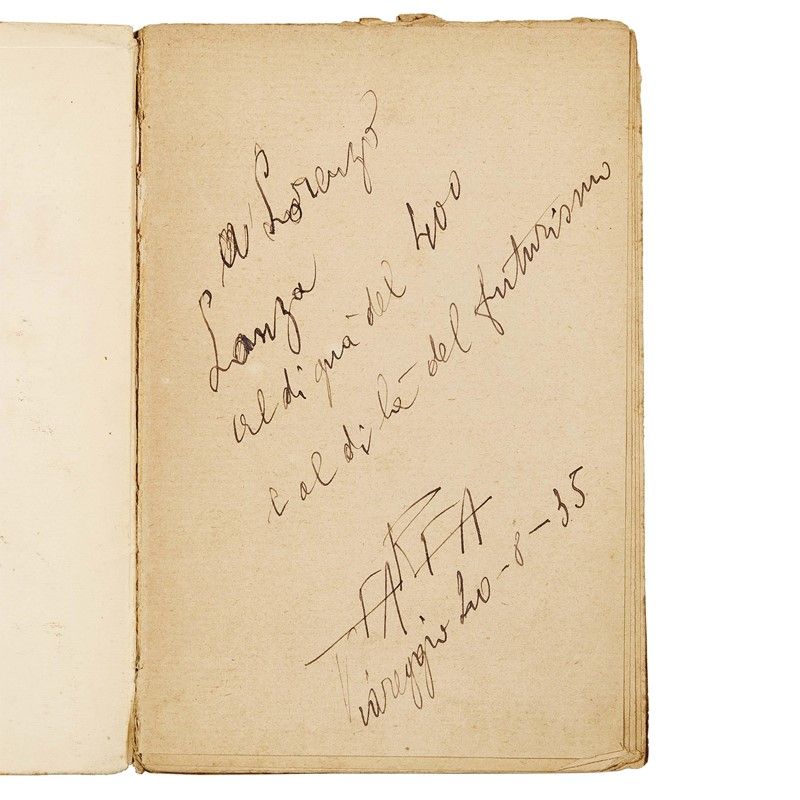 a Lorenzo
Lanza
al di quà del 400
e al di là del futurismo
FARFA
Viareggio 20-8-35